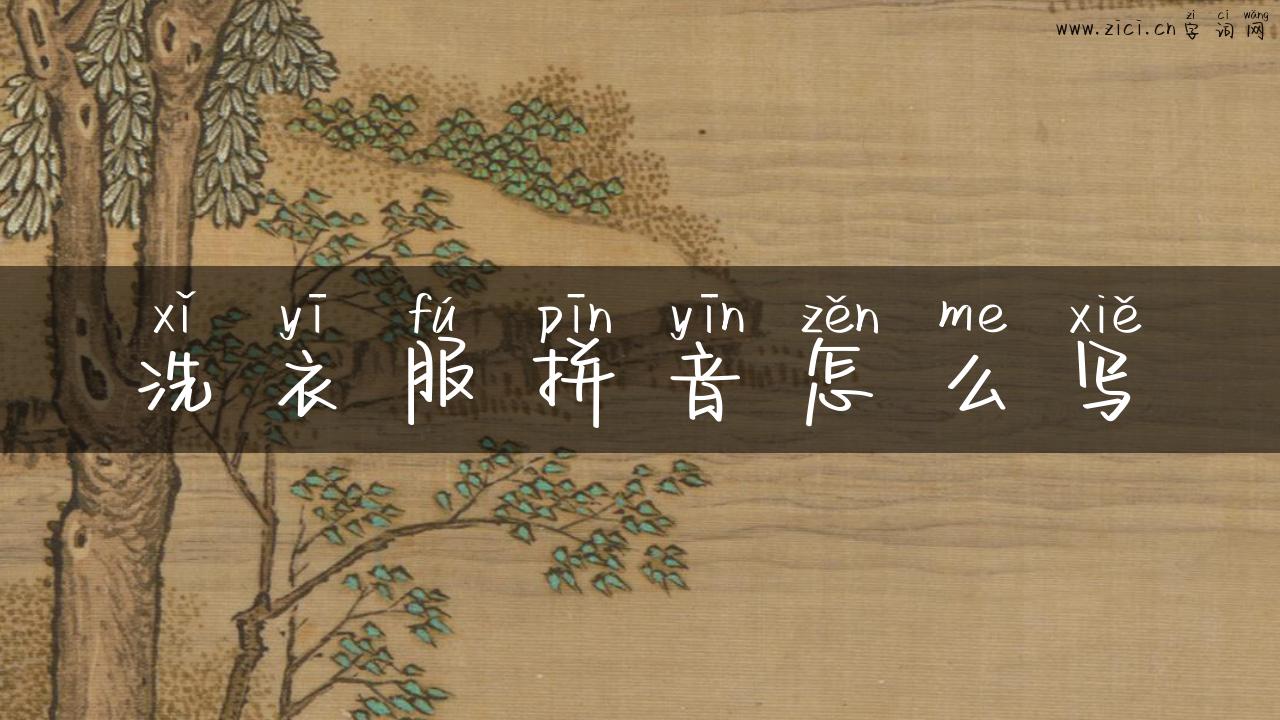 zì cí wǎng
www.zici.cn 字词网
xǐ yī fú pīn yīn zěn me xiě
洗衣服拼音怎么写